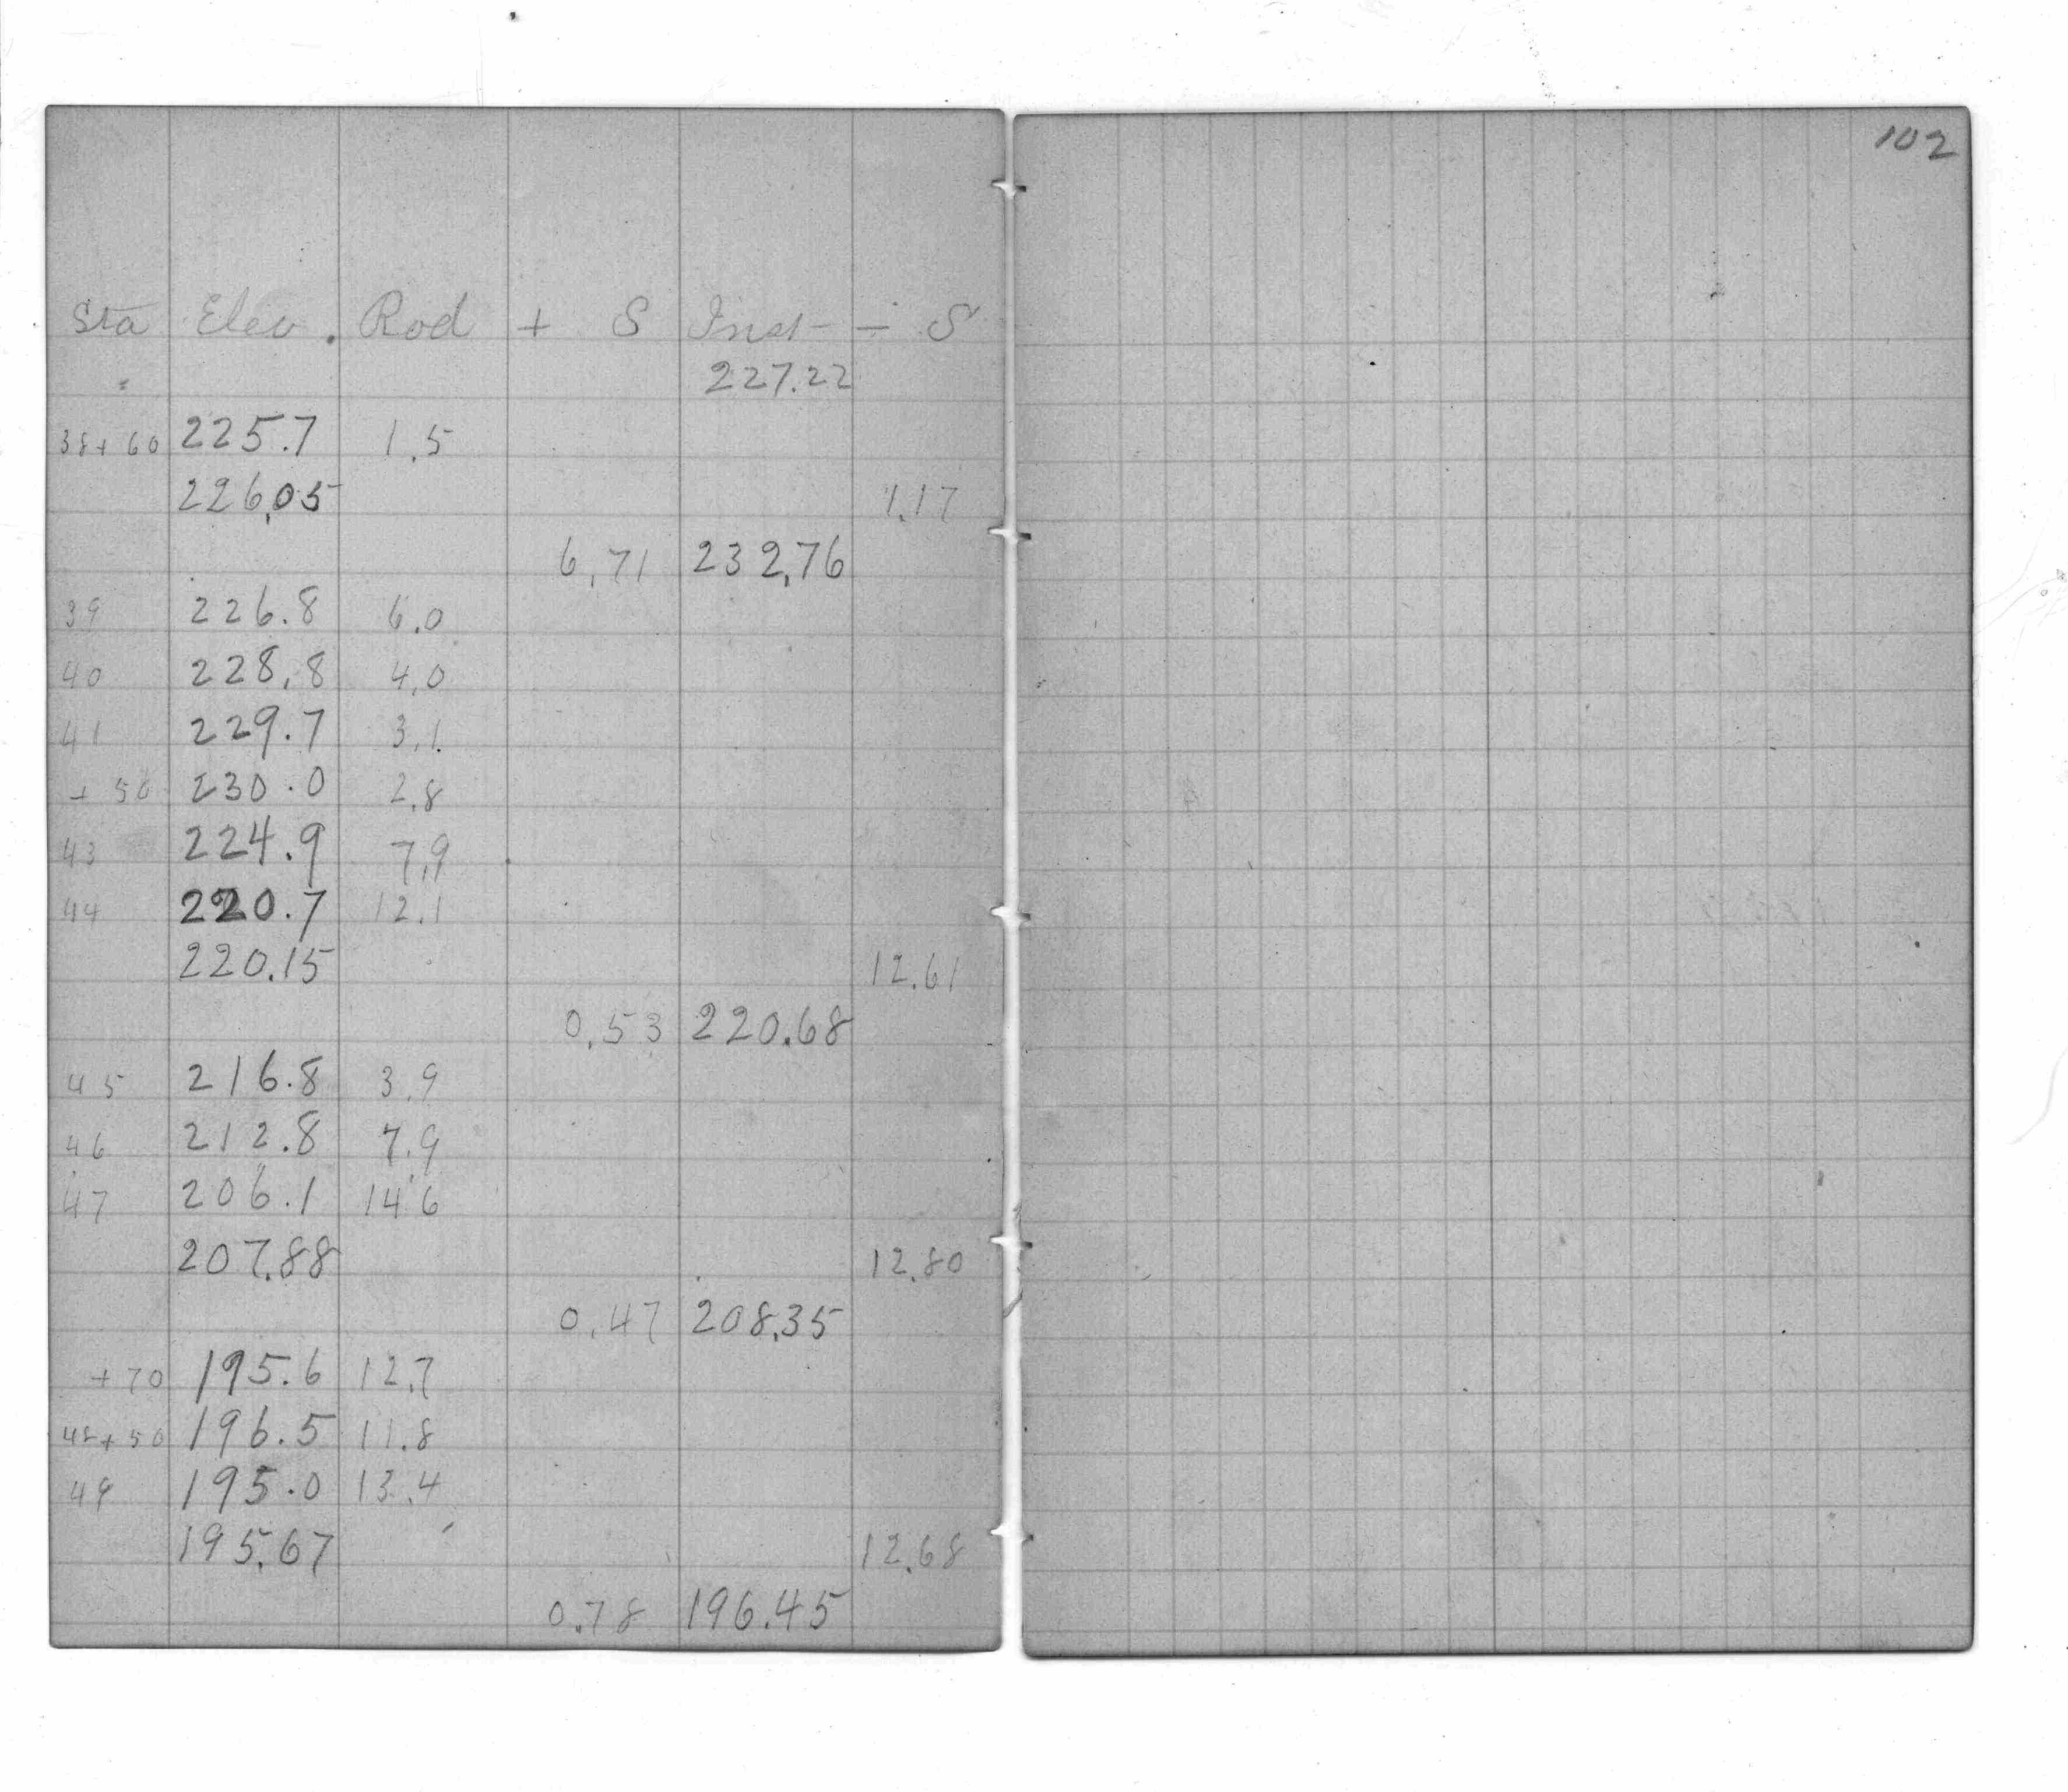 102
Sta Elev. Rod + S Inst - S
227.22
38+60 225.7 1.5
226.05 1.17
6.71 232.76
39 226.8 6.0
40 228.8 4.0
41 229.7 3.1
+50 230.0 2.8
43 224.9 7.9
44 220.7 12.1
220.15 12.61
0.53 220.68
45 216.8 3.9
46 212.8 7.9
47 206.1 14.6
207.88 12.80
0.47 208.35
+70 195.6 12.7
48+50 196.5 11.8
49 195.0 13.4
195.67 12.68
0.78 196.45